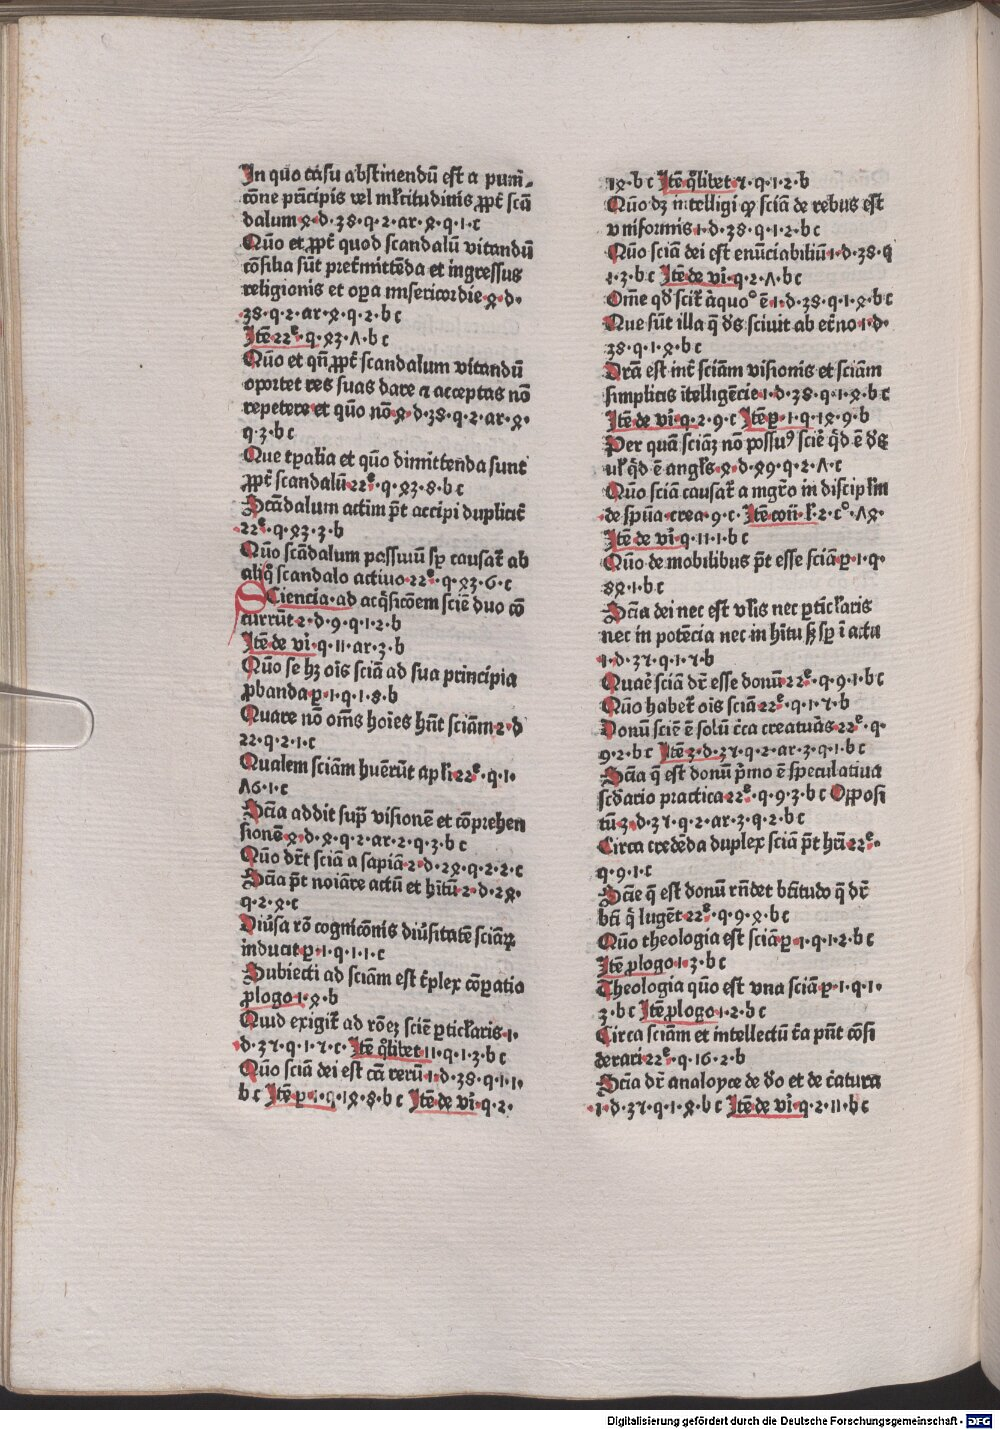 In quo casu abstinendū est a pum̄-
cōne prīcipis vel ml̄titudinis ꝓpt̄ scā
dalum 4·d·38·q·2·ar·4·q·1·c
Quō et ꝓpt̄ quod scandalū vitandū
cōsilia sūt pretm̄ittēda et ingressus
religionis et oꝑa misericordie 4·d·
38·q·2·ar·4·q·2·b c
Itē 22ᵉ·q·43·Λ·b c
Quō et qn̄ ꝓpt̄ scandalum vitandū
oportet res suas dare ⁊ acceptas nō
repetere et quō nō 4·d·38·q·2·ar·4·
q·3·b c
Que tꝑalia et quō dimittenda sunt
ꝓpt̄ scandalū 22ᵉ·q·43·8·b c
Scādalum actim p̄t accipi duplicit̄
22ᵉ·q·43·3·b
Quō scādalum possuū sꝑ causat̄ ab
aliq̊ scandalo actiuo 22ᵉ·q·43·6·c
SCiencia·ad acq̇sicōem sciē duo cō
currūt 2·d·9·q·1·2·b
Itē de vi̇·q·11·ar·3·b
Quō se hꝫ oīs sciā ad sua principia
ꝓbanda ꝑ·1·q·1·8·b
Quare nō om̄s hoīes hn̄t sciām 2·d
22·q·2·1·c
Qualem sciām huērūt apl̄i 22ᵉ·q·1·
Λ6·1·c
Scīa addit sup̄ visionē et cōprehen
sionē 4·d·4·q·2·ar·2·q·3·b c
Quō dr̄t sciā a sapiā 2·d·24·q·2·2·c
Scīa p̄t noīare actū et hītū 2·d·24·
q·2·4·c
Diūsa rō cognicōnis diūsitatē sciaꝝ
inducit ꝑ·1·q·1·1·c
Subiecti ad sciām est t̄plex cōꝑatio
ꝓlogo 1·4·b
Quid exigit̄ ad rōeꝫ sciē ꝑticl̄aris 1·
d·37·q·1·7·c·Itē q̊libet 11·q·1·3·b c
Quō sciā dei est cā rerū 1·d·38·q·1·1·
b c Itē ꝑ·1·q·14·8·b c Itē de vi̇·q·2·
14·b c Itē q̊libet 7·q·1·2·b
Quō dꝫ intelligi ꝙ sciā de rebus est
vniformis 1·d·38·q·1·2·b c
Quō sciā dei est enūciabiliū 1·d·38·q
2·3·b c Itē de vi̇·q·2·Λ·b c
Om̄e qd̄ scit̄ a quo° ē 1·d·38·q·1·4·b c
Que sūt illa q̄ dꝰs sciuit ab et̄no 1·d·
38·q·1·4·b c
Dr̄a est int̄ sciām visionis et sciām
simplicis ītelligēcie 1·d·38·q·1·4·b c
Itē de vi̇·q·2·9·c Itē ꝑ·1·q·14·9·b
Per quā sciāꝫ nō possūꝰ scīē q̇d ē dꝰs
ul̄ q̇d ē angl̄s 4·d·49·q·2·Λ·c
Quō sciā causat̄ a mgr̄o in discipl̄m
de spūa crea·9·c·Itē con̄·l̄·2·c°·Λ4·
Itē de vi̇·q·11·1·b c
Quō de mobilibus p̄t esse sciā ꝑ·1·q·
84·1·b c
Scīa dei nec est vl̄is nec ꝑticl̄aris
nec in potēcia nec in hītu sꝫ sꝑ ī actu
1·d·37·q·1·7·b
Quae̊ sciā dr̄ esse donū 22ᵉ·q·9·1·b c
Quō habet̄ oīs sciā 22ᵉ·q·1·7·b
Donū sciē ē solū cc̄a creaturas 22ᵉ·q·
9·2·b c Itē 3·d·37·q·2·ar·3·q·1·b c
Scīa q̄ est donū pˈmo ē speculatiua
scd̄ario practica 22ᵉ·q·9·3·b c Oꝓposi
tū 3·d·37·q·2·ar·3·q·2·b c
Circa credēda duplex sciā p̄t hr̄i 22ᵉ·
q·9·1·c
Scīe q̄ est donū rn̄det btītudo q̄ dr̄
bt̄i q̇ lugēt 22ᵉ·q·9·4·b c
Quō theologia est sciā ꝑ·1·q·1·2·b c
Itē ꝓlogo 1·3·b c
Theologia quō est vna sciā ꝑ·1·q·1·
3·b c Itē ꝓlogo 1·2·b c
Circa sciām et intellectū c̄a pn̄t cōsi
derari 22ᵉ·q·16·2·b
Scīa dr̄ analoyce de dō et de c̄atura
1·d·37·q·1·4·b c Itē de vi̇·q·2·11·b c
Digitalisierung gefördert durch die Deutsche Forschungsgemeinschaft - DFG